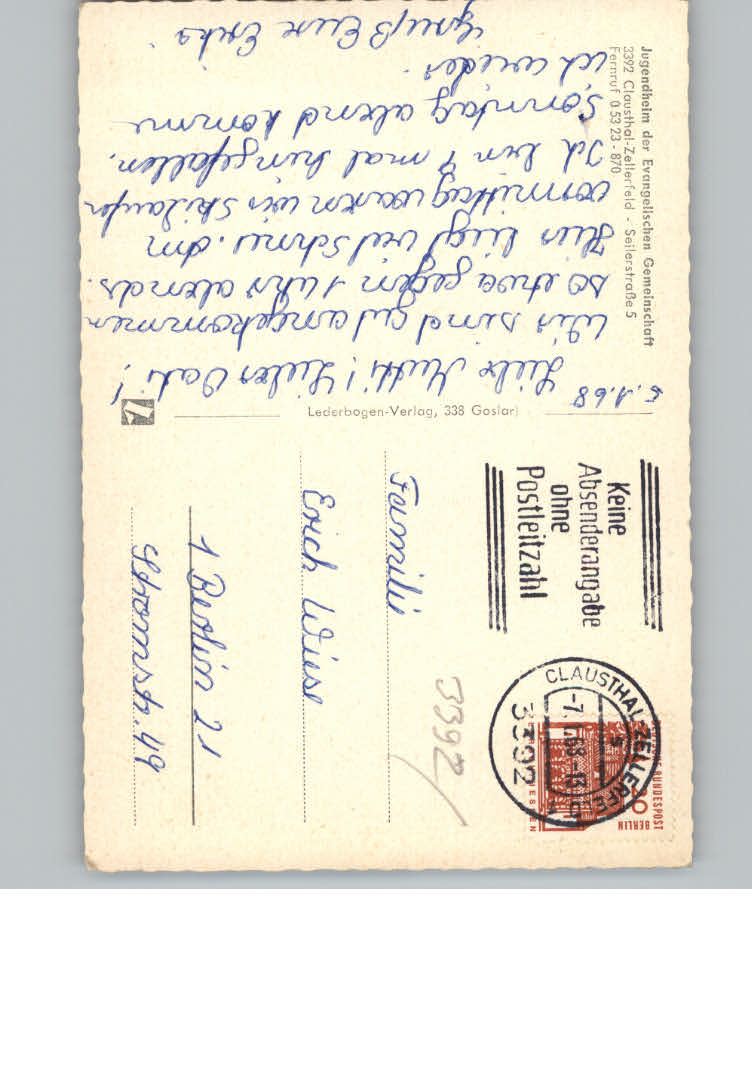 Jugendheim der Evangelischen Gemeinschaft
3392 Clausthal-Zellerfeld - Seilerstraße 5
Fernruf 0 53 23 - 870
6.1.68
Liebe Mutti! Lieber Vati!
Wir sind gut angekommen
so etwa gegen 1 Uhr abends.
Hier liegt viel Schnee. Am
vormittag waren wir Skilaufen
Ich bin 4 mal hingefallen.
Sonntag abend komme
ich wieder.
Gruß Eure Erika
Lederbogen-Verlag, 338 Goslar
Keine
Absenderangabe
ohne
Postleitzahl
CLAUSTHAL-ZELLERFELD
-7.1.68-13
3392
DEUTSCHE BUNDESPOST
BERLIN
20
3392
Familie
Erich Wiese
1 Berlin 21
Stromstr. 49